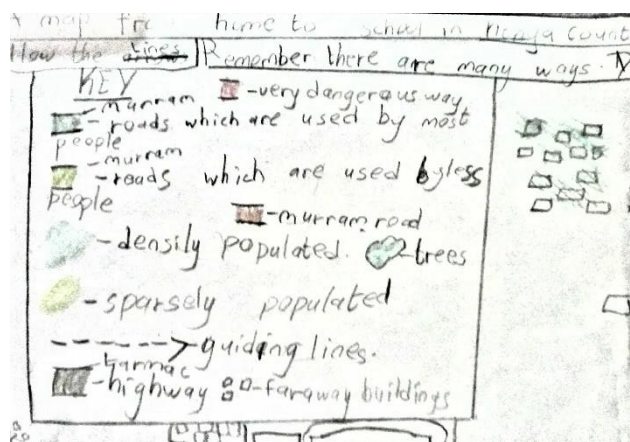 A map from home to school in County
How the lines Remember there are many ways.
KEY
-very dangerous way
murram
-roads which are used by most
people
murram
-roads which are used by less
people
-murram road
-densily populated. -trees
-sparsely populated
-guiding lines.
tarmac
-highway -faraway buildings